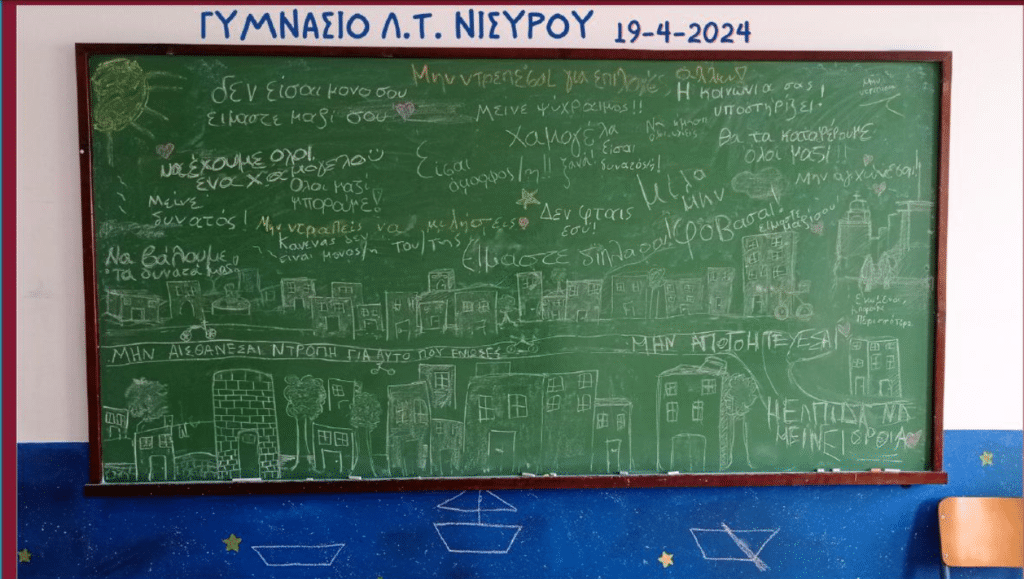 ΓΥΜΝΑΣΙΟ Λ.Τ. ΝΙΣΥΡΟΥ 19-4-2024
Μην ντρέπεσαι για
δεν είσαι μονο σου
είμαστε μαζί σου
Μεινε ψύχραιμος!!
Η κοινωνία σας
υποστηρίζει.
Χαμογέλα
Θα τα καταφέρουμε
όλοι μαζί!!!
Να έχουμε ολοι
ένα χαμόγελο
Όλοι μαζί
μπορούμε!
Είσαι
όμορφος/η!!
ξανά!
είσαι
δυνατός!
Μην αγχώνεσαι!
Μείνε
δυνατός!
Μίλα
μην
φοβάσαι!
Δεν φταις
εσύ!
Μην ντραπείς να μιλήσεις
κανένας δεν
είναι μονος/η του/της
Είμαστε δίπλα σου!
Να βάλουμε
τα δυνατά μας!
ΜΗΝ ΑΙΣΘΑΝΕΣΑΙ ΝΤΡΟΠΗ ΓΙΑ ΑΥΤΟ ΠΟΥ ΕΝΙΩΣΕΣ
ΜΗΝ ΑΠΟΓΟΗΤΕΥΕΣΑΙ
Η ΕΛΠΙΔΑ ΝΑ
ΜΕΙΝΕΙ ΟΡΘΙΑ